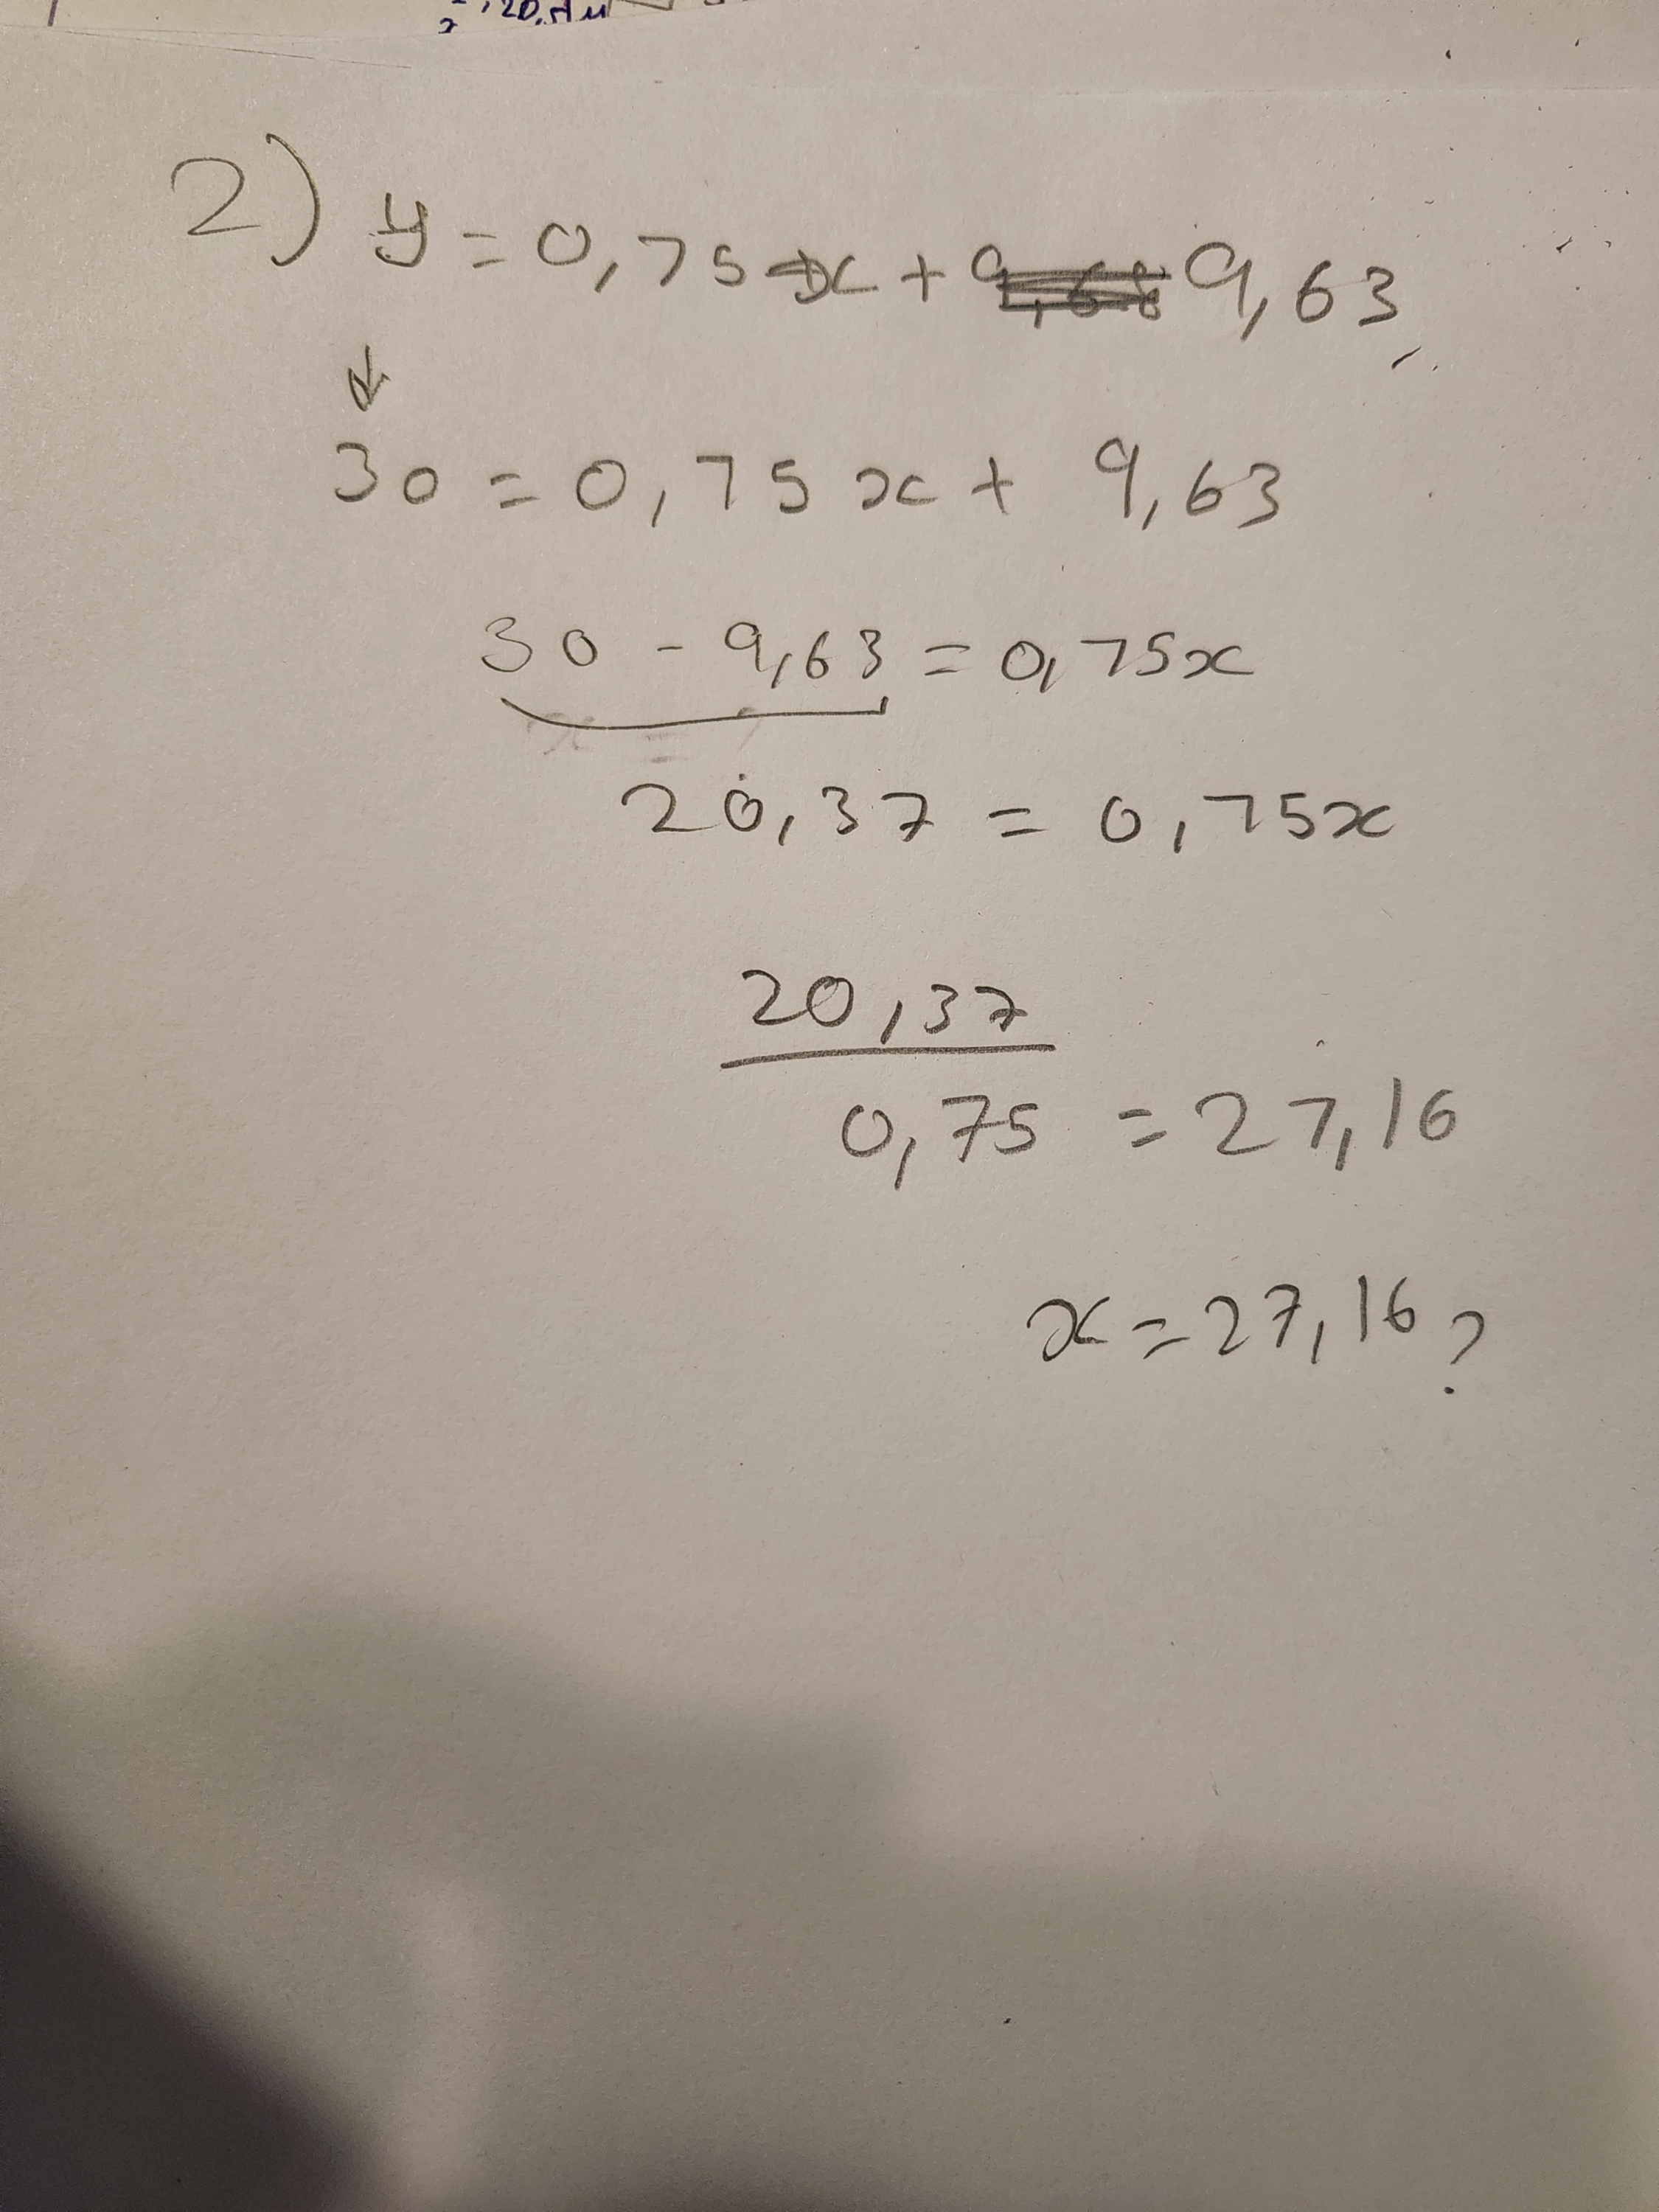 2) y = 0,75x + 9,63
↓
30 = 0,75x + 9,63
30 - 9,63 = 0,75x
20,37 = 0,75x
20,37
0,75 = 27,16
x = 27,16?